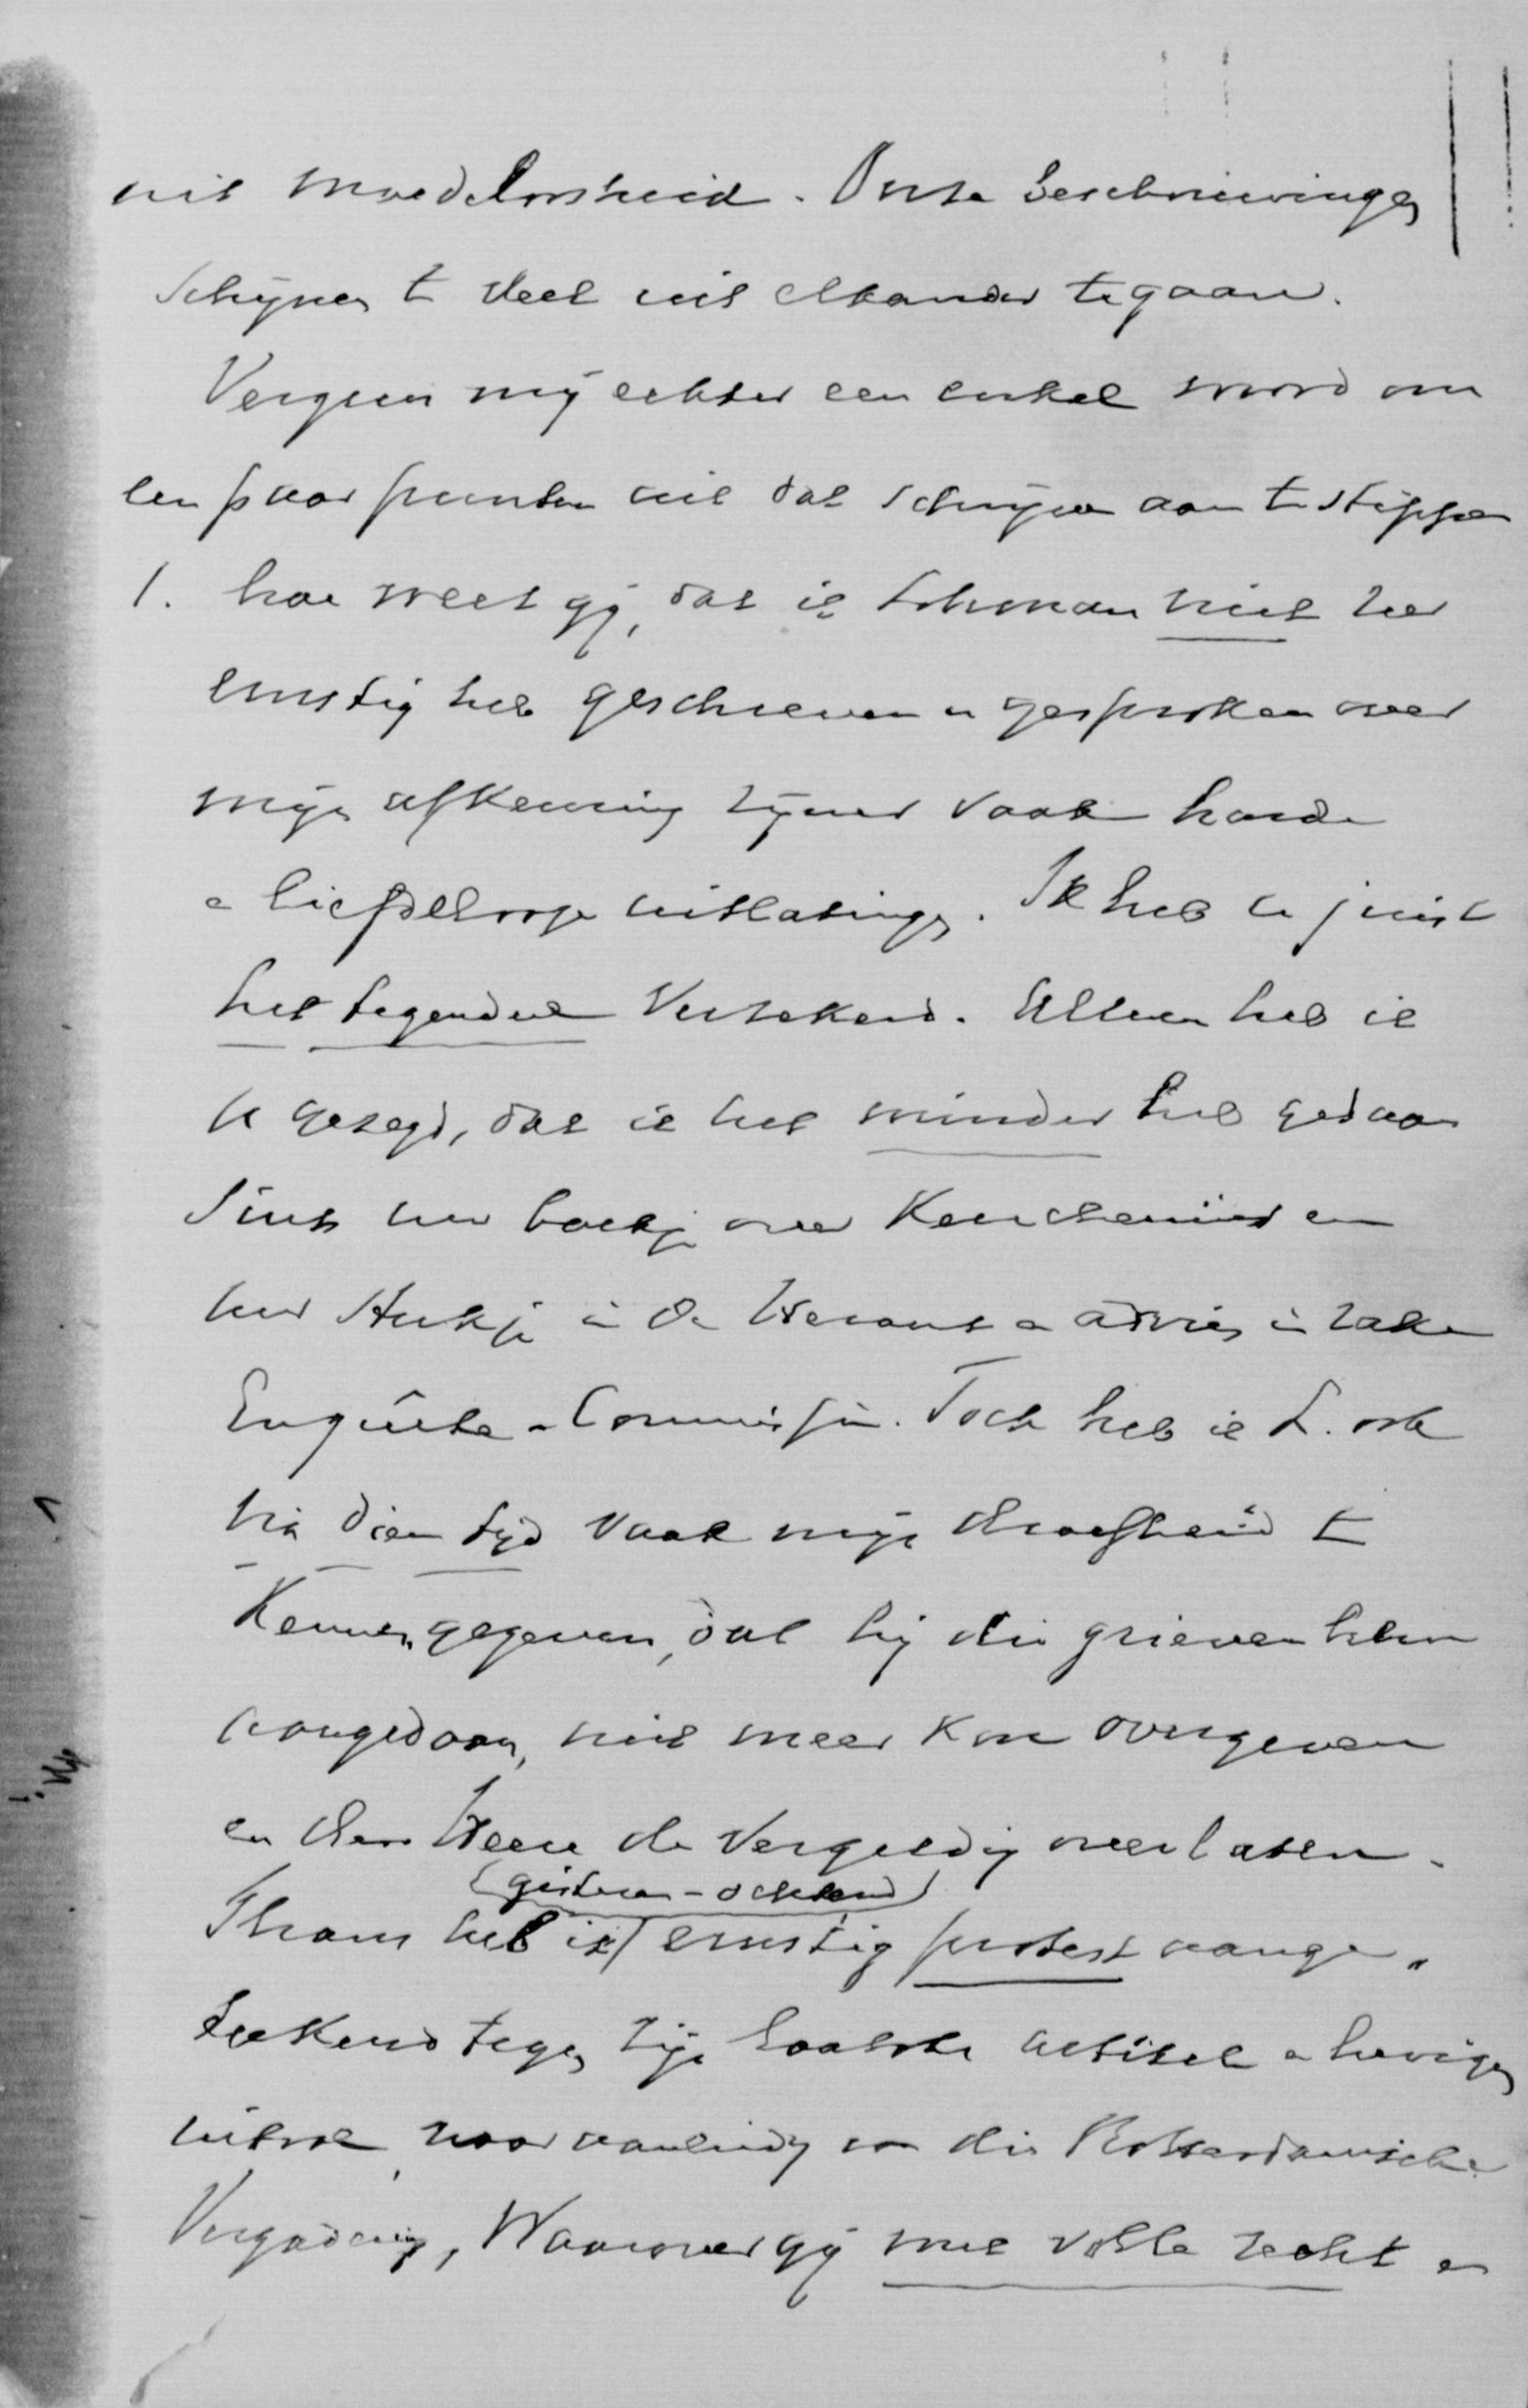 uit moedeloosheid. Onze beschouwingen
schijnen te veel uit elkander te gaan.
Vergun mij echter een enkel woord om
een paar punten uit dat schrijven aan te stippen
1. hoe weet gij, dat ik Lohman niet zeer
ernstig heb geschreven en gesproken over
mijn afkeuring zijner vaak harde
en liefdelooze uitlatingen. Ik heb u juist
het tegendeel verzekerd. Alleen heb ik
u gezegd, dat ik het minder heb gedaan
sints uw boekje over Keuchenius en
uw stukje in de Heraut en advies in zake
Enquête-Commissie. Toch heb ik L. ook
ná dien tijd vaak mijn droefheid te
kennen gegeven, dat hij die grieven hem
aangedaan, niet meer kon overgeven
en den Heere de vergelding overlaten.
(gisteren-ochtend)
Thans heb ik ernstig protest aange-
teekend tegen zijn laatste artikel en hevigen
uitval, naar aanleiding van die Rotterdamsche
Vergadering, waarover gij met volle recht en